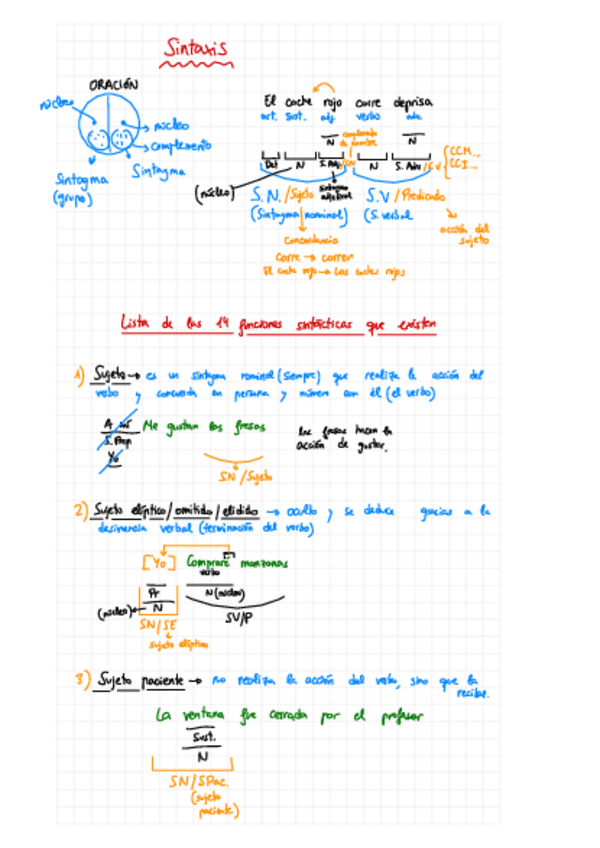 Sintaxis
ORACIÓN
núcleo
núcleo
complemento
Sintagma
Sintagma
(grupo)
El coche rojo corre deprisa
art. sust. adj. verbo adv.
N
complemento
de nombre
N
Det N S. Adj /CN N S. Adv /CV
(CCM...
CCI...
(núcleo)
S.N./Sujeto
sintagma
adjetival
S.V / Predicado
(Sintagma nominal)
(S. verbal
acción del
sujeto
Concordancia
Corre → corren
El coche rojo → Los coches rojos
Lista de las 14 funciones sintácticas que existen
1) Sujeto → es un sintagma nominal (siempre) que realiza la acción del
verbo y concuerda en persona y número con él (el verbo)
A mí Me gustan las fresas
S. Prep
Yo
las fresas hacen la
acción de gustar.
SN/Sujeto
2) Sujeto elíptico/omitido/elidido → oculto y se deduce gracias a la
desinencia verbal (terminación del verbo)
[Yo] Compraré manzanas
verbo
Pr N (núcleo)
(núcleo) N
SN/SE SV/P
sujeto elíptico
3) Sujeto paciente → no realiza la acción del verbo, sino que la
recibe.
La ventana fue cerrada por el profesor
Sust.
N
SN/SPac.
(sujeto
paciente)